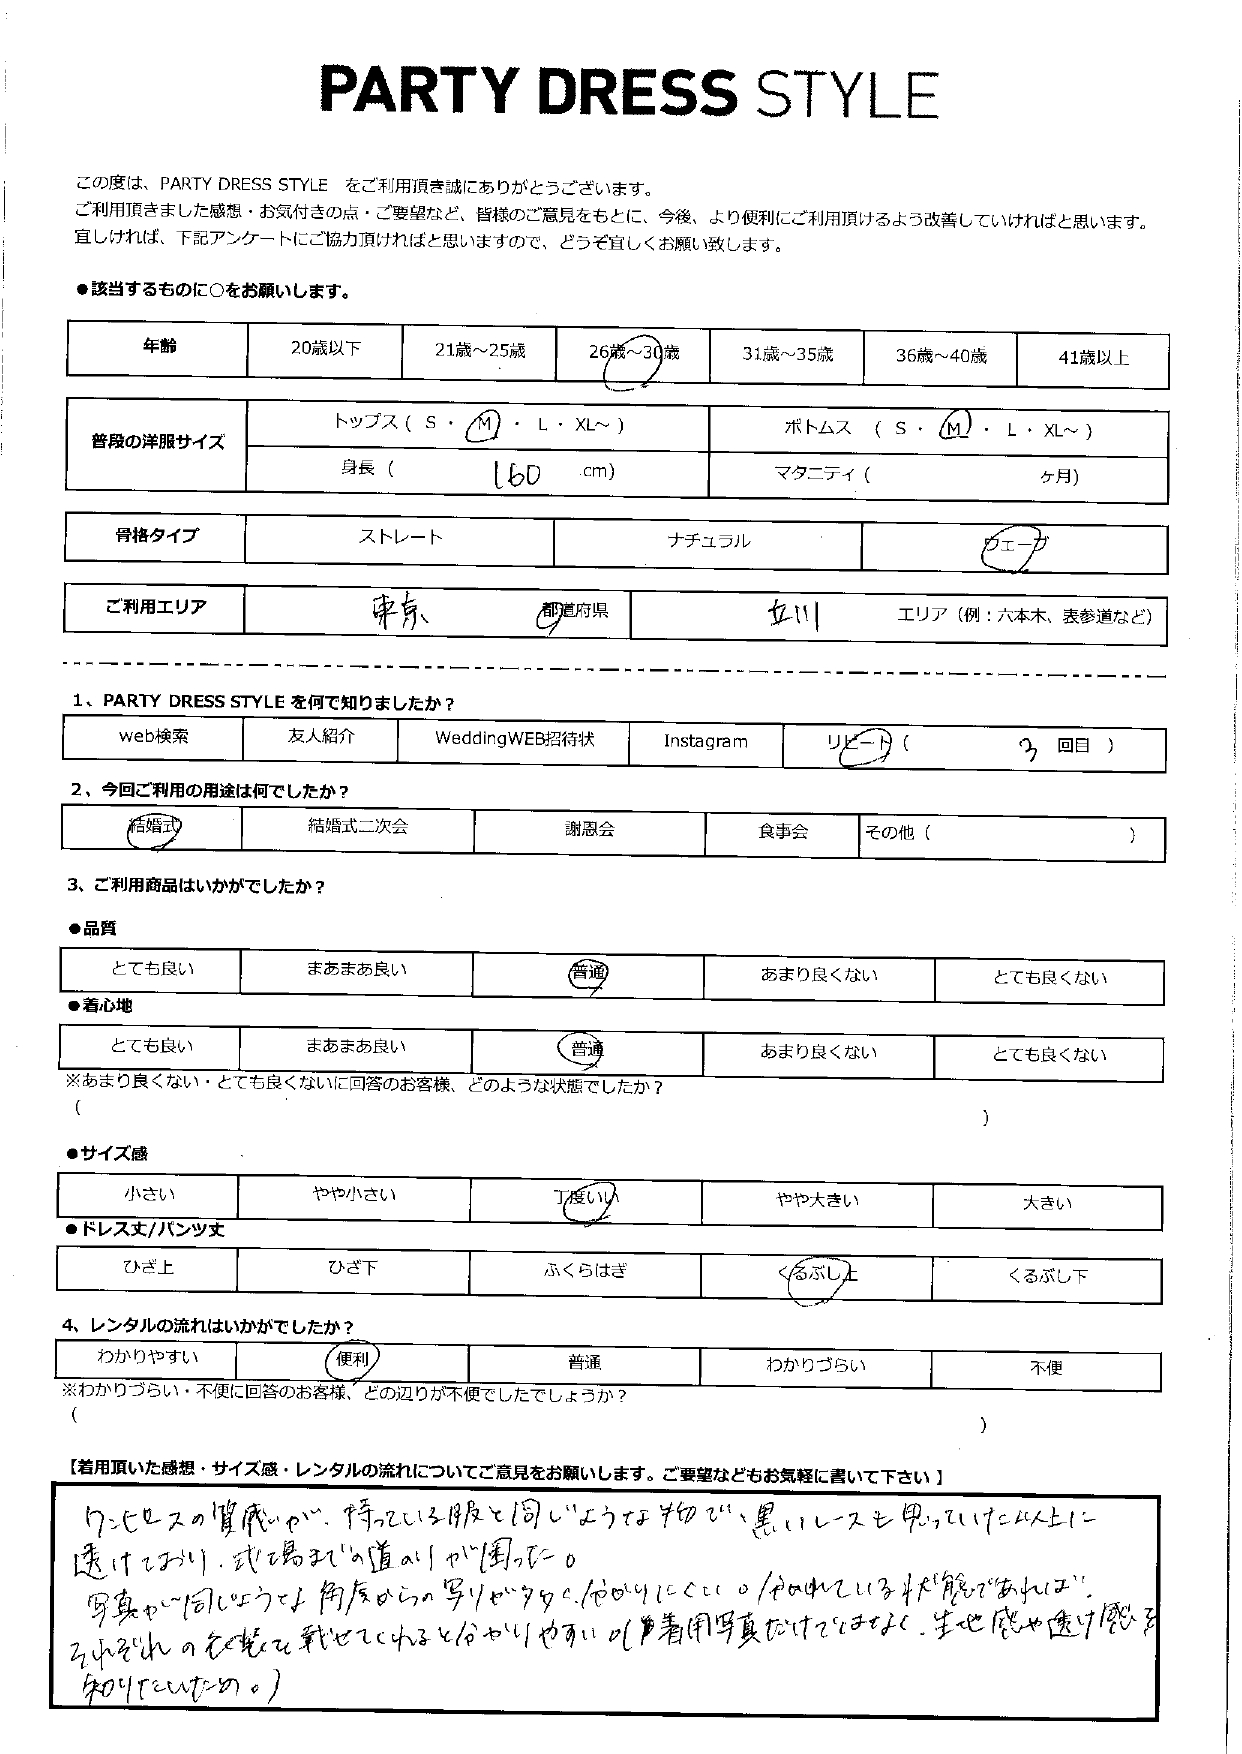 PARTY DRESS STYLE
この度は、PARTY DRESS STYLE をご利用頂き誠にありがとうございます。
ご利用頂きました感想・お気付きの点・ご要望など、皆様のご意見をもとに、今後、より便利にご利用頂けるよう改善していければと思います。
宜しければ、下記アンケートにご協力頂ければと思いますので、どうぞ宜しくお願い致します。
●該当するものに○をお願いします。
年齢 20歳以下 21歳～25歳 26歳～30歳 31歳～35歳 36歳～40歳 41歳以上
普段の洋服サイズ トップス ( S ・ M ・ L ・ XL～ ) ボトムス ( S ・ M ・ L ・ XL～ )
身長 ( 160 cm) マタニティ ( ヶ月)
骨格タイプ ストレート ナチュラル ウェーブ
ご利用エリア 東京 都道府県 立川 エリア（例：六本木、表参道など）
1、PARTY DRESS STYLE を何で知りましたか？
web検索 友人紹介 WeddingWEB招待状 Instagram リピート ( 3 回目 )
2、今回ご利用の用途は何でしたか？
結婚式 結婚式二次会 謝恩会 食事会 その他 ( )
3、ご利用商品はいかがでしたか？
●品質
とても良い まあまあ良い 普通 あまり良くない とても良くない
●着心地
とても良い まあまあ良い 普通 あまり良くない とても良くない
※あまり良くない・とても良くないに回答のお客様、どのような状態でしたか？
( )
●サイズ感
小さい やや小さい 丁度いい やや大きい 大きい
●ドレス丈/パンツ丈
ひざ上 ひざ下 ふくらはぎ くるぶし上 くるぶし下
4、レンタルの流れはいかがでしたか？
わかりやすい 便利 普通 わかりづらい 不便
※わかりづらい・不便に回答のお客様、どの辺りが不便でしたでしょうか？
( )
【着用頂いた感想・サイズ感・レンタルの流れについてご意見をお願いします。ご要望などもお気軽に書いて下さい 】
ワンピースの質感が、持っている服と同じような物で、黒いレースも思っていた以上に
透けており、式場までの道のりが困った。
写真が同じような角度からの写りが多く、分かりにくい。分かれている状態であれば、
それぞれの 載せてくれると分かりやすい。(着用写真だけではなく、生地感や透け感を
知りたいため。)